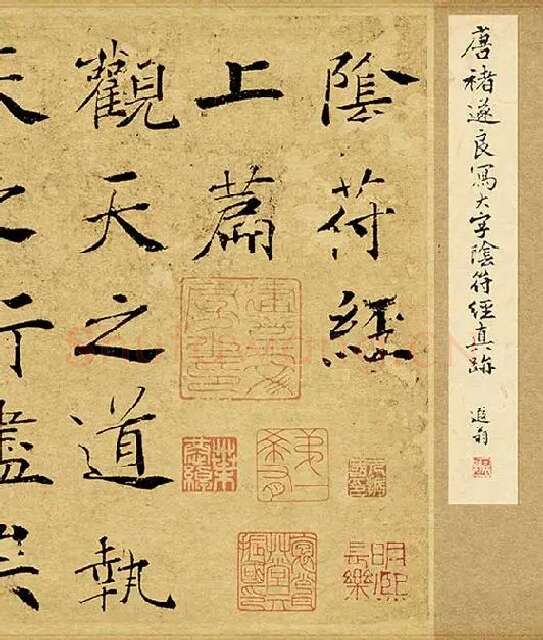 唐褚遂良寫大字陰符經真跡
遐翁
陰符經
上篇
觀天之道執
天之行盡矣